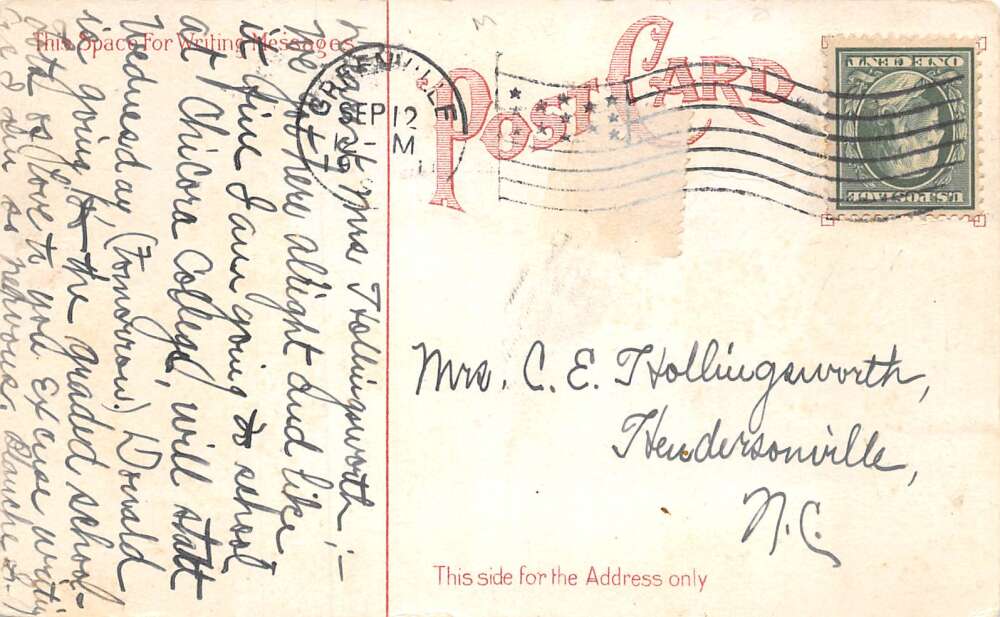 This Space For Writing Messages
POST CARD
GREENVILLE
SEP 12
M
19
U.S. POSTAGE
ONE CENT
Mrs Hollingsworth;-
We got here allright and like
it fine I am going to school
at Chicora College, will statt
Wednesday (Tomorrow.) Donald
is going to the graded school-
Lots of Love to you Excuse writing
as I am so nervous. Blanche
Mrs. C. E. Hollingsworth,
Hendersonville,
N.C.
This side for the Address only